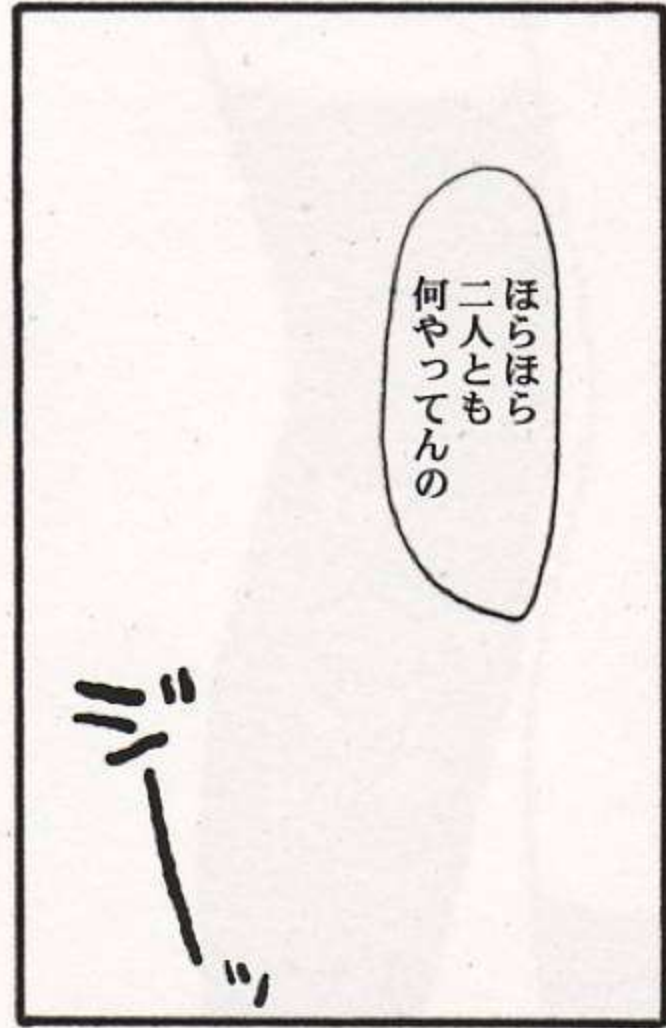 ほらほら
二人とも
何やってんの
ジーッ